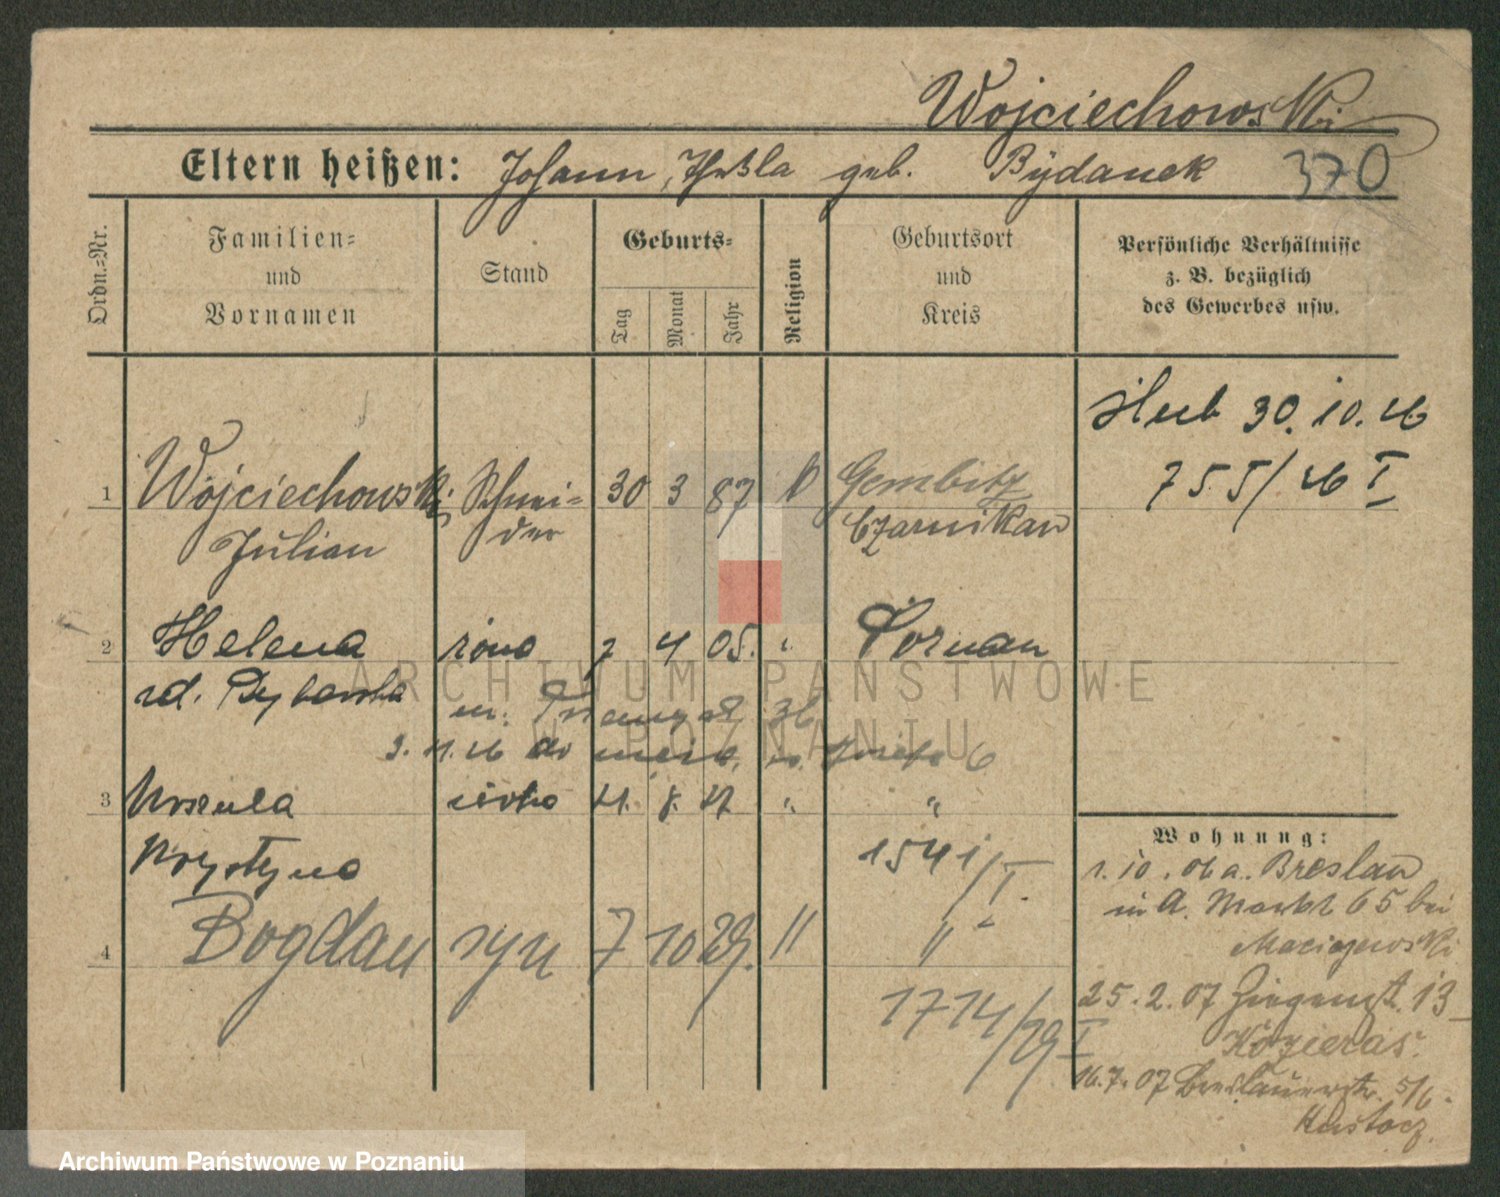 Wojciechowski
Eltern heißen: Johann, Thekla geb. Bydanek 370
Ordn.=Nr.
Familien= und Vornamen
Stand
Geburts=
Tag Monat Jahr
Religion
Geburtsort und Kreis
Persönliche Verhältnisse z. B. bezüglich des Gewerbes usw.
30. 10. 26
755/26 I
1 Wojciechowski Schnei= 30 3 87 Gembitz
Julian der Czarnikau
2 Helena żona 7 4 05. " Poznań
3. 11. 26 do
3 Urszula córka 21. 8. 27 " "
Krystyna 1541/I
4 Bogdan syn 7 10 29. " "
1714/29 I
Wohnung:
1. 10. 06 a. Breslau
in A. Markt 65 bei
Maciejewski
25. 2. 07 Ziegenst. 13
16. 7. 07 Breslauerstr.
ARCHIWUM PAŃSTWOWE
W POZNANIU
Archiwum Państwowe w Poznaniu